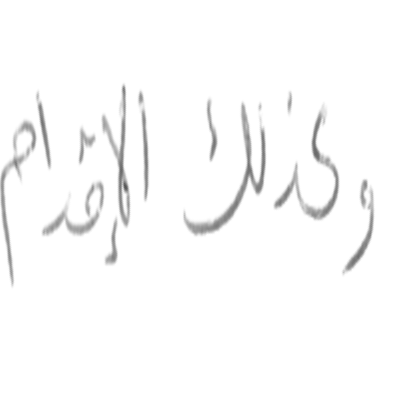 وكذلك الإقدام